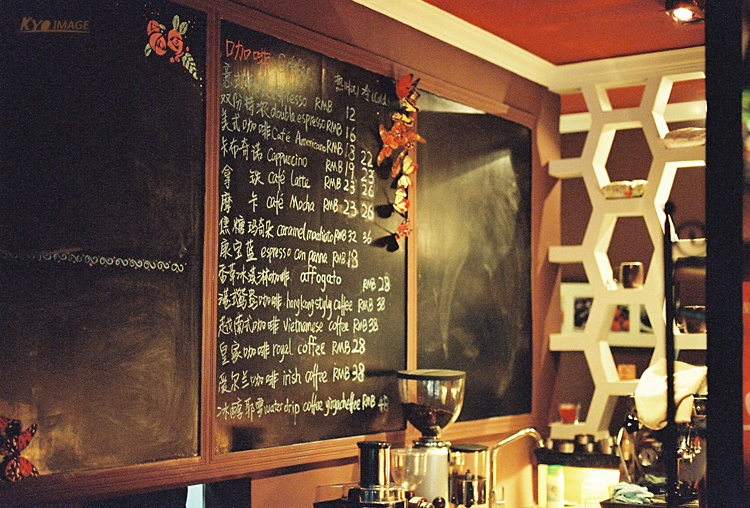 KYO IMAGE
咖啡 Coffee 热/Hot 冷/Cold
意式 espresso RMB 12
双份特浓 double espresso RMB 16
美式咖啡 Café Americano RMB 18 22
卡布奇诺 Cappuccino RMB 19 23
拿铁 café Latte RMB 23 26
摩卡 café Mocha RMB 23 26
焦糖玛奇朵 caramel machiato RMB 32 36
康宝蓝 espresso con panna RMB 18
香草冰淇淋咖啡 affogato RMB 28
港式鸳鸯咖啡 hongkong styly coffee RMB 38
越南式咖啡 vietnamese coffee RMB 38
皇家咖啡 royal coffee RMB 28
爱尔兰咖啡 irish coffee RMB 38
冰酿耶雪 water drip coffee yirgacheffee RMB 48